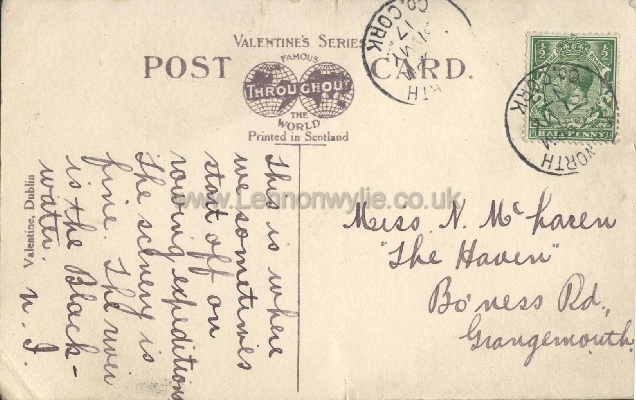 VALENTINE'S SERIES
POST CARD.
FAMOUS
THROUGHOUT
THE
WORLD
Printed in Scotland
CO. CORK
17
½ ½
HALFPENNY
CORK
WORTH
www.Lennonwylie.co.uk
This is where
we sometimes
start off on
rowing expeditions
The scenery is
fine. The river
is the Black-
water.
N. I.
Valentine, Dublin
Miss N. McLaren
"The Haven"
Bo'ness Rd.,
Grangemouth